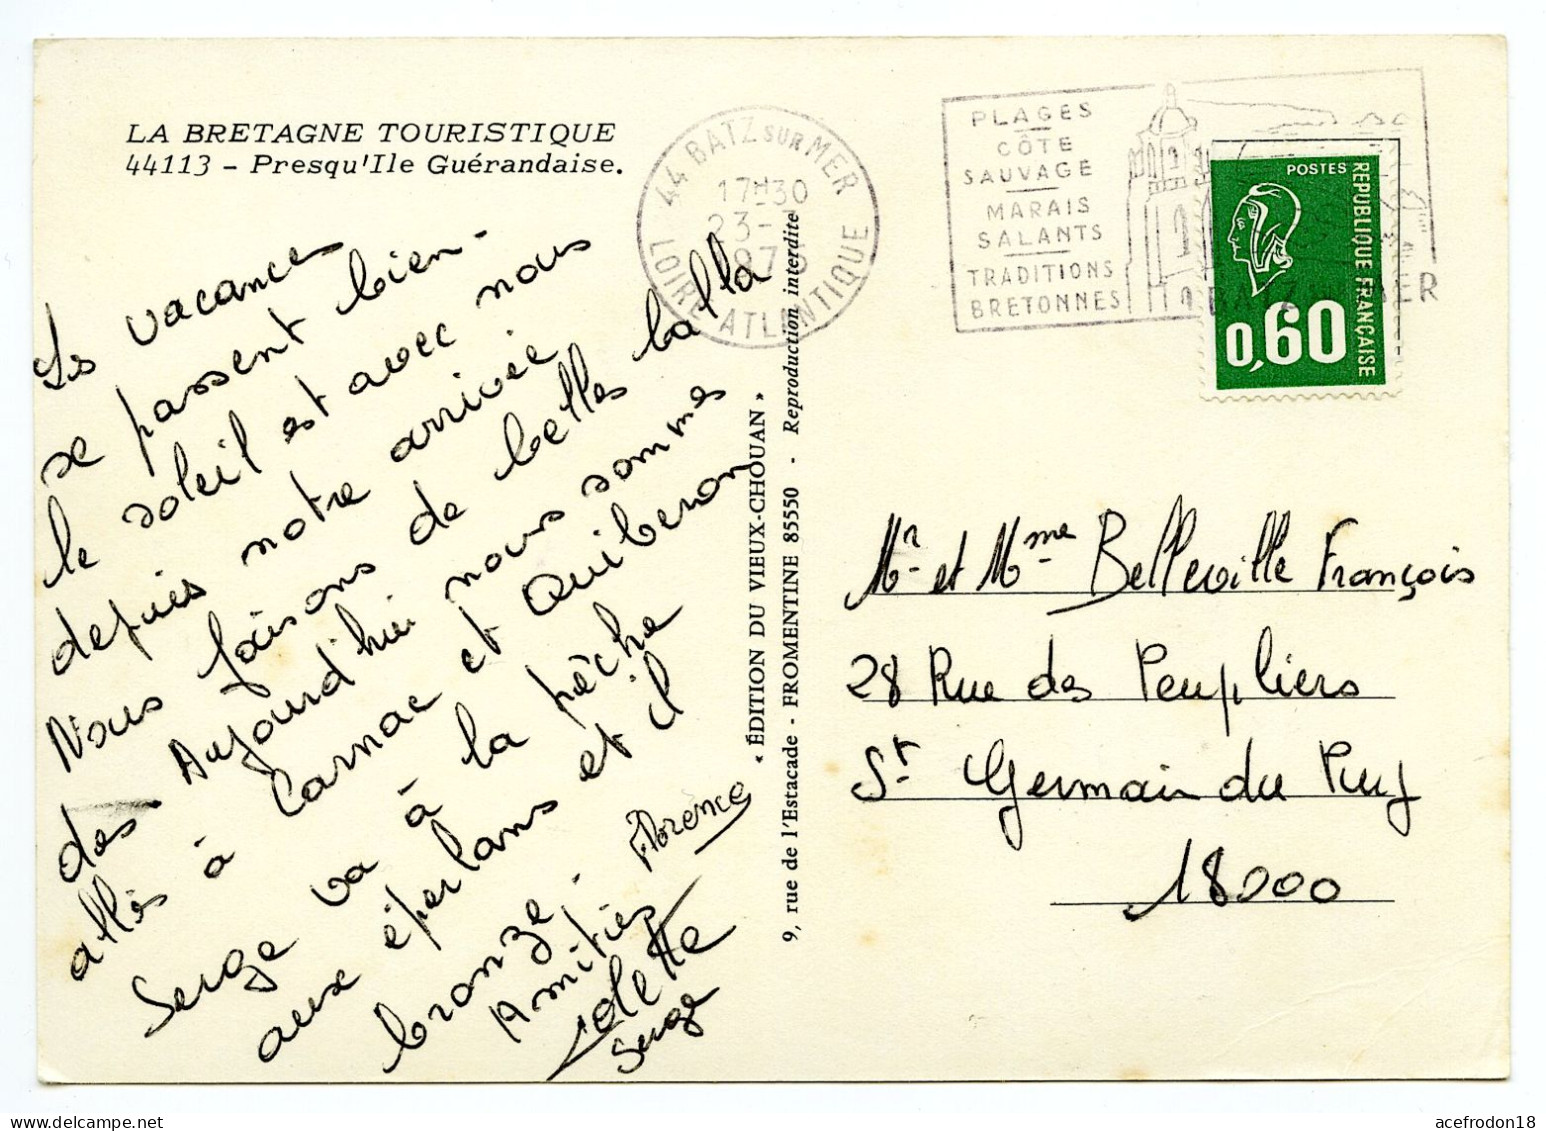 LA BRETAGNE TOURISTIQUE
44113 - Presqu'Ile Guérandaise.
44 BATZ SUR MER
17H30
23-
LOIRE ATLANTIQUE
PLAGES
CÔTE
SAUVAGE
MARAIS
SALANTS
TRADITIONS
BRETONNES
BATZ MER
POSTES
REPUBLIQUE FRANÇAISE
0,60
Les vacances
se passent bien -
le soleil est avec nous
depuis notre arrivée
Nous faisons de belles balla
des. Aujourd'hui nous sommes
allés à Carnac et Quiberon
Serge va à la pêche
aux éperlans et il
bronze.
Amitiés
Florence
Colette
Serge
« ÉDITION DU VIEUX-CHOUAN »
9, rue de l'Estacade - FROMENTINE 85550 - Reproduction interdite
Mr et Mme Belleville François
28 Rue des Peupliers
St Germain du Puy
18000
acefrodon18